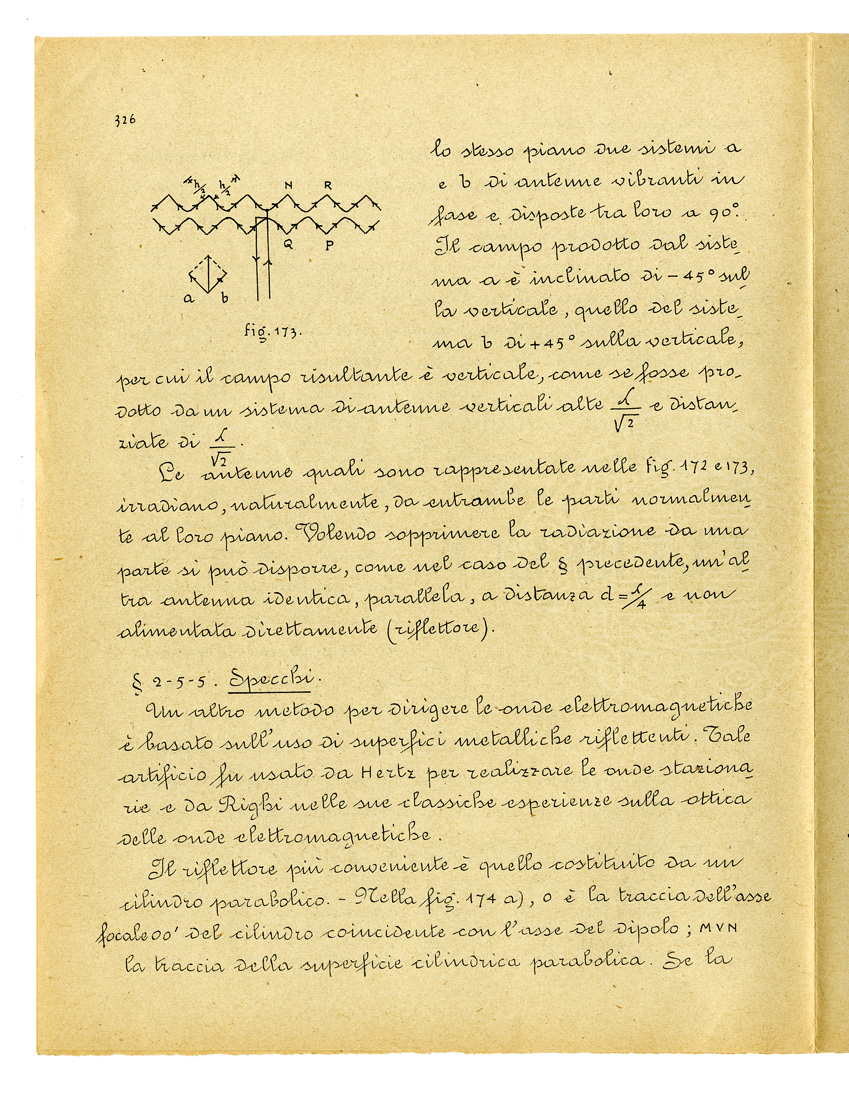 326
lo stesso piano due sistemi a
e b di antenne vibranti in
fase e disposte tra loro a 90°.
Il campo prodotto dal siste_
ma a è inclinato di - 45° sul_
la verticale, quello del siste_
ma b di + 45° sulla verticale,
N R
Q P
a b
fig. 173.
per cui il campo risultante è verticale, come se fosse pro_
dotto da un sistema di antenne verticali alte λ/√2 e distan_
ziate di λ/√2.
Le antenne quali sono rappresentate nelle fig. 172 e 173,
irradiano, naturalmente, da entrambe le parti normalmen_
te al loro piano. Volendo sopprimere la radiazione da una
parte si può disporre, come nel caso del § precedente, un'al_
tra antenna identica, parallela, a distanza d=λ/4 e non
alimentata direttamente (riflettore).
§ 2-5-5. Specchi.
Un altro metodo per dirigere le onde elettromagnetiche
è basato sull'uso di superfici metalliche riflettenti. Tale
artificio fu usato da Hertz per realizzare le onde staziona_
rie e da Righi nelle sue classiche esperienze sulla ottica
delle onde elettromagnetiche.
Il riflettore più conveniente è quello costituito da un
cilindro parabolico. - Nella fig. 174 a), o è la traccia dell'asse
focale oo' del cilindro coincidente con l'asse del dipolo; MVN
la traccia della superficie cilindrica parabolica. Se la